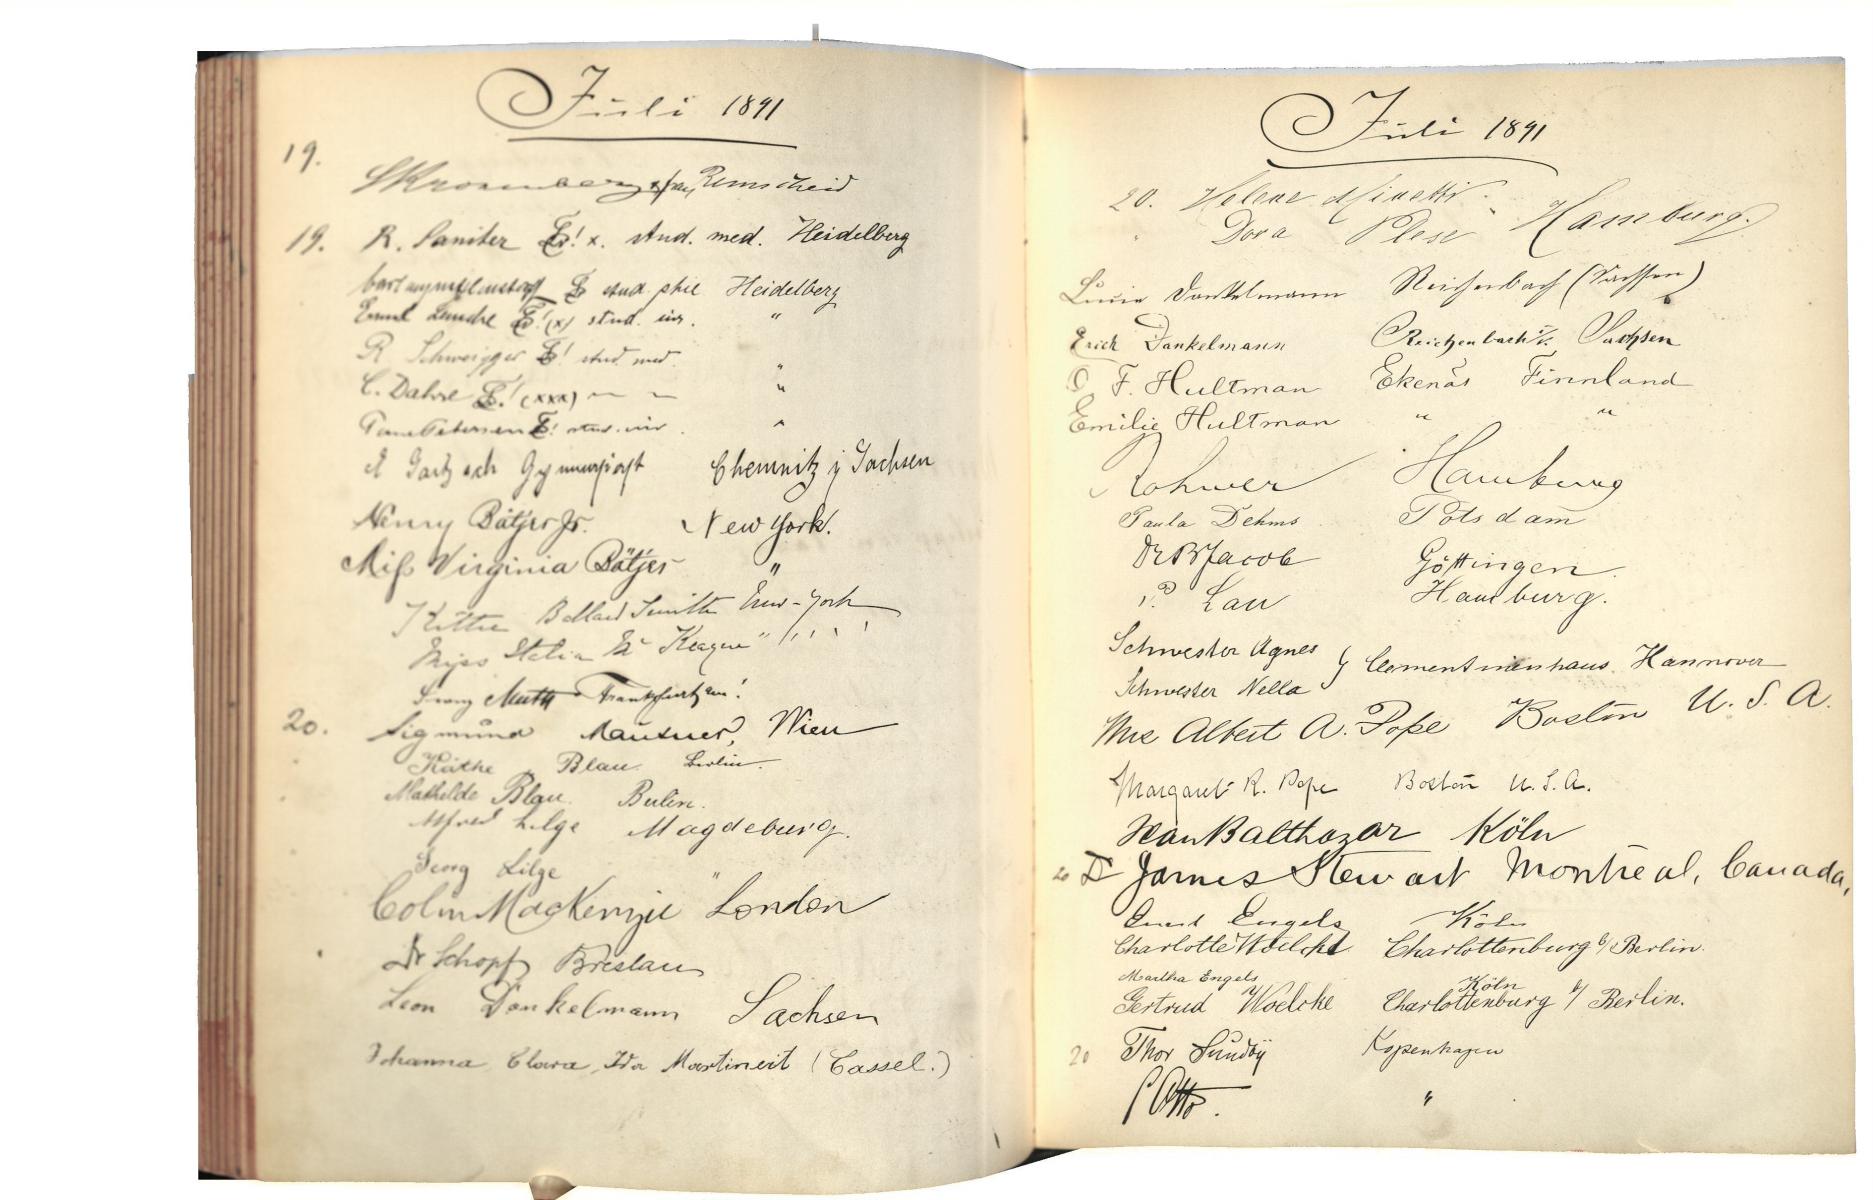 Juli 1891
19.
Remscheid
19. R. Saniter x. stud. med. Heidelberg
stud. phil. Heidelberg
stud. jur. "
R. Schweigger ! stud. med. "
C. Dahre ! (xxx) — — "
Petersen ! stud. jur. "
Chemnitz i Sachsen
Henry Bätjer Jr. New York.
Miss Virginia Bätjer "
Ballard Smith New-York
Miss " " " "
Muth Frankfurt a/m!
20. Sigmund Mautner, Wien
Käthe Blau Berlin.
Mathilde Blau. Berlin.
Alfred Lilge Magdeburg.
Georg Lilge "
Colin MacKenzie London
Dr Schopf Breslau
Leon Dankelmann Sachsen
Johanna Clara, Ida Martineit (Cassel.)
Juli 1891
20. Helene Minetti.
" Dora Plese " Hamburg.
Dankelmann Reichenbach (Sachsen)
Erich Dankelmann Reichenbach i/. Sachsen
F. Hultman Ekenäs Finnland
Emilie Hultman " "
Rohwer Hamburg
Paula Dehms Potsdam
Dr B Jacob Göttingen.
P. Lau Hamburg.
Schwester Agnes
Schwester Nella } Clementinenhaus. Hannover
Mrs Albert A. Pope Boston U. S. A.
Margaret R. Pope Boston U. S. A.
Jean Balthazar Köln
20 Dr James Stewart Montreal, Canada,
Engels Köln
Charlotte Woelcke Charlottenburg b/ Berlin.
Martha Engels Köln
Gertrud Woelcke Charlottenburg b/ Berlin.
20 Thor Sundby Kopenhagen
Otto. "